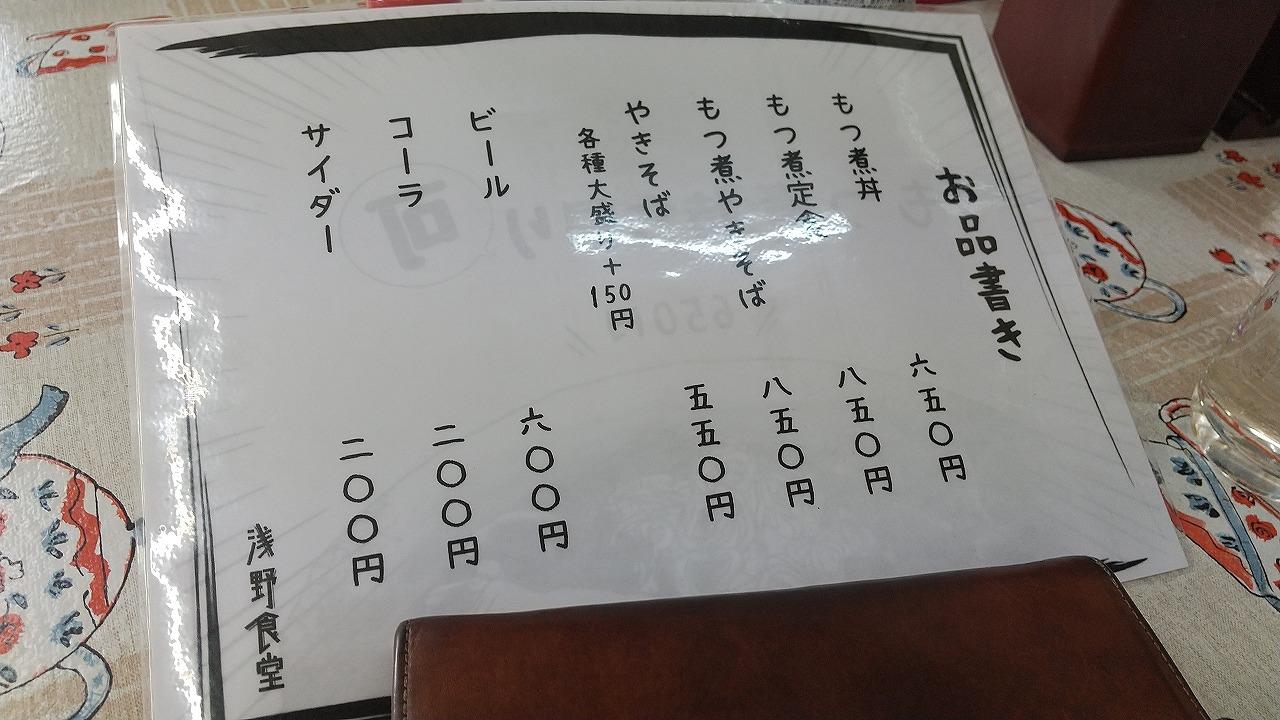 お品書き
もつ煮丼 六五〇円
もつ煮定食 八五〇円
もつ煮やきそば 八五〇円
やきそば 五五〇円
各種大盛り＋150円
ビール 六〇〇円
コーラ 二〇〇円
サイダー 二〇〇円
浅野食堂